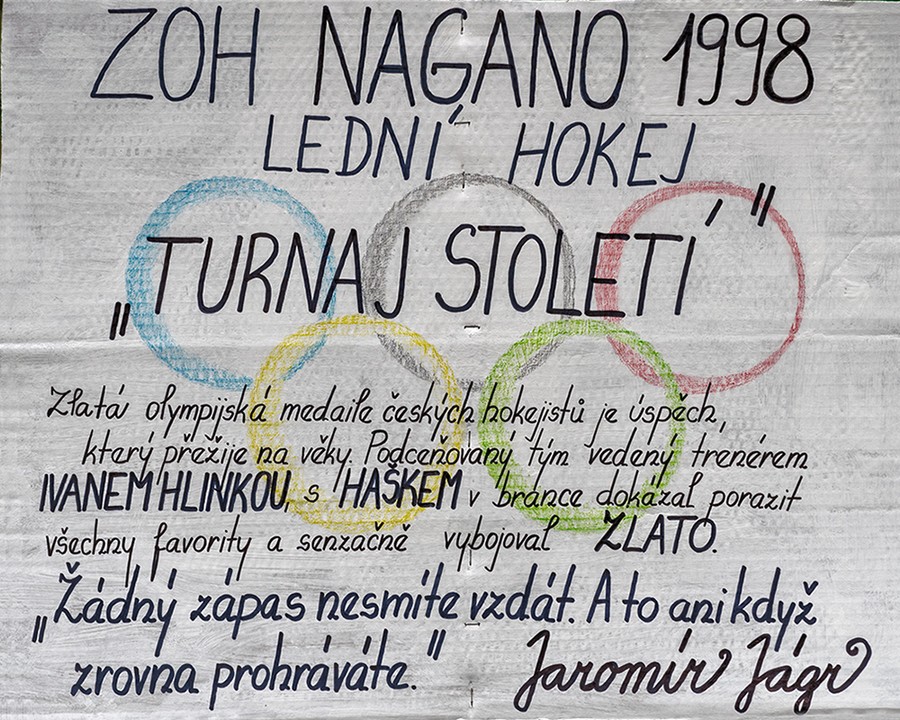 ZOH NAGANO 1998
LEDNÍ HOKEJ
„TURNAJ STOLETÍ"
Zlatá olympijská medaile českých hokejistů je úspěch,
který přežije na věky. Podceňovaný tým vedený trenérem
IVANEM HLINKOU, s HAŠKEM v bránce dokázal porazit
všechny favority a senzačně vybojoval ZLATO.
„Žádný zápas nesmíte vzdát. A to ani když
zrovna prohráváte." Jaromír Jágr